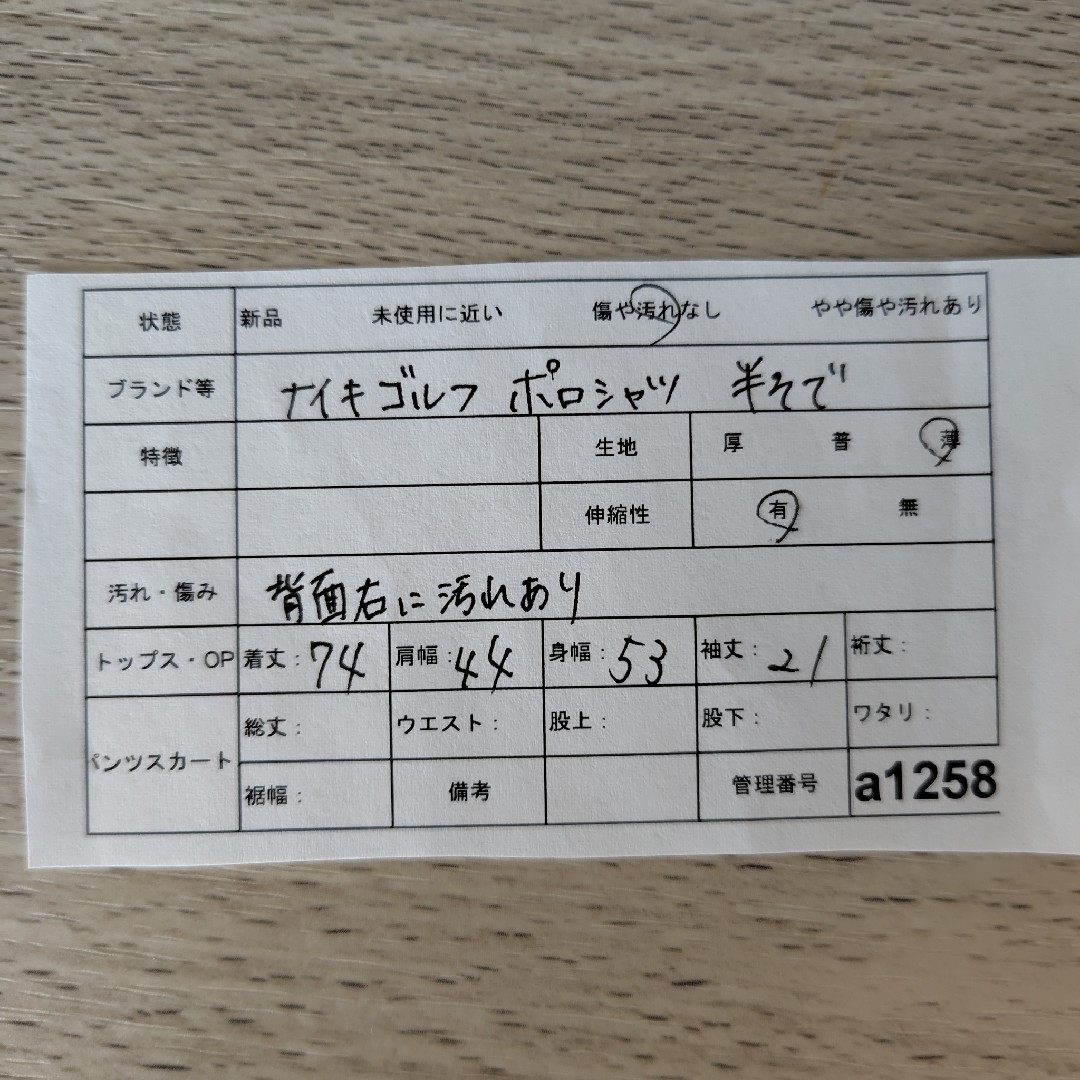 状態 新品 未使用に近い 傷や汚れなし やや傷や汚れあり
ブランド等 ナイキゴルフ ポロシャツ 半そで
特徴 生地 厚 普 薄
伸縮性 有 無
汚れ・傷み 背面右に汚れあり
トップス・OP 着丈：74 肩幅：44 身幅：53 袖丈：21 裄丈：
パンツスカート 総丈： ウエスト： 股上： 股下： ワタリ：
裾幅： 備考 管理番号 a1258